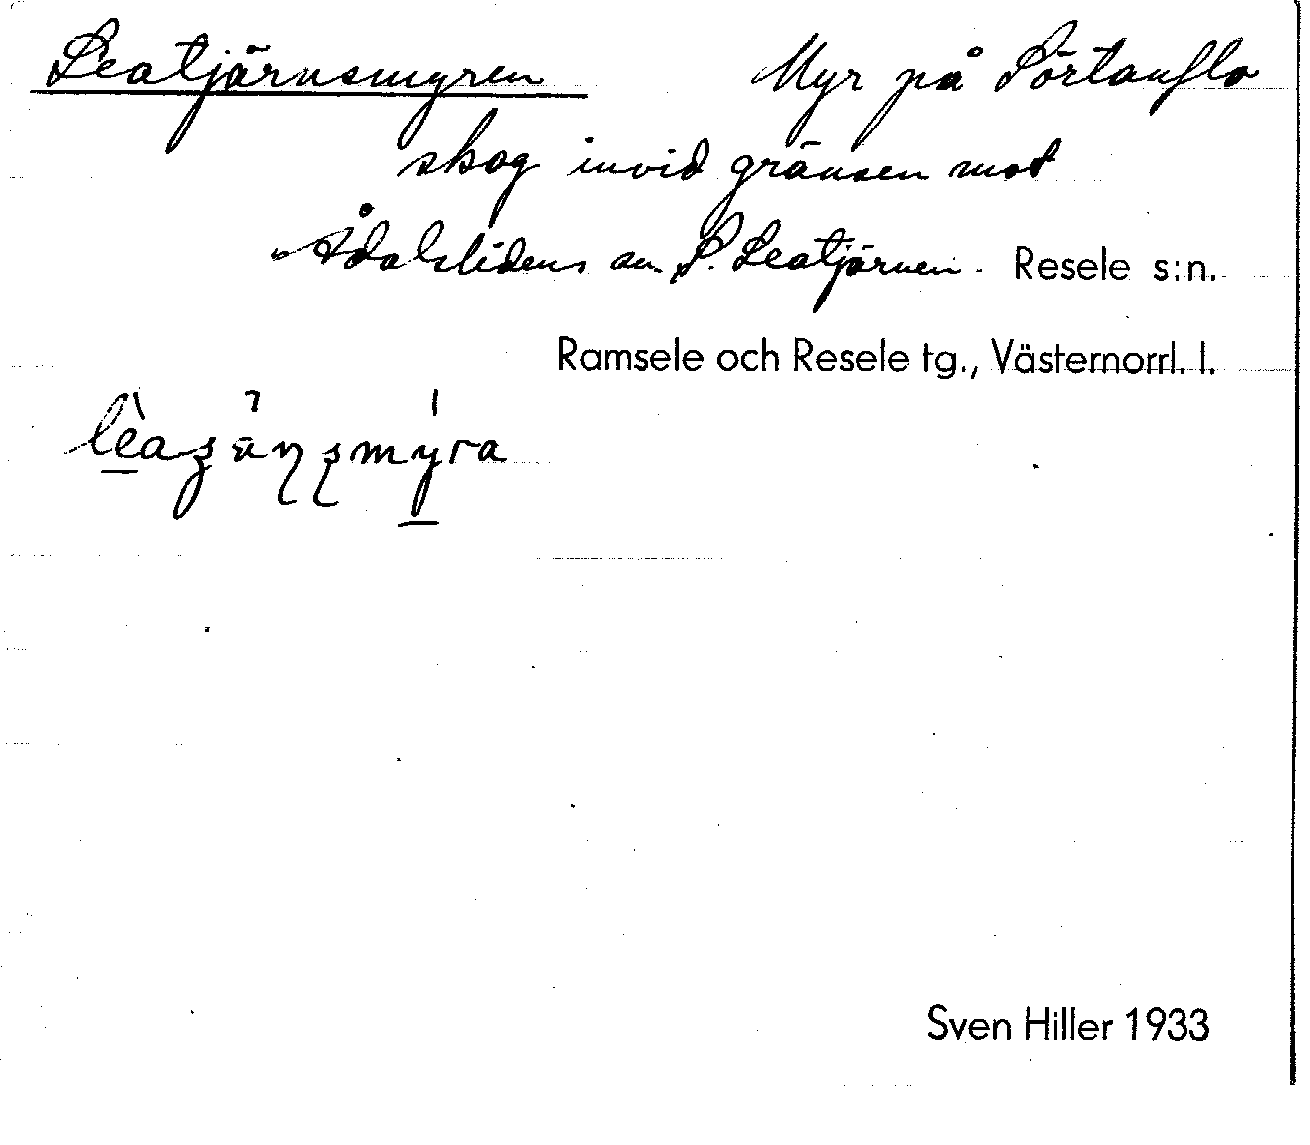 Leatjärnsmyren Myr på Sörtanflo
skog invid gränsen mot
Ådalslidens sn. S. Leatjärnen. Resele s:n.
Ramsele och Resele tg., Västernorrl. l.
Sven Hiller 1933